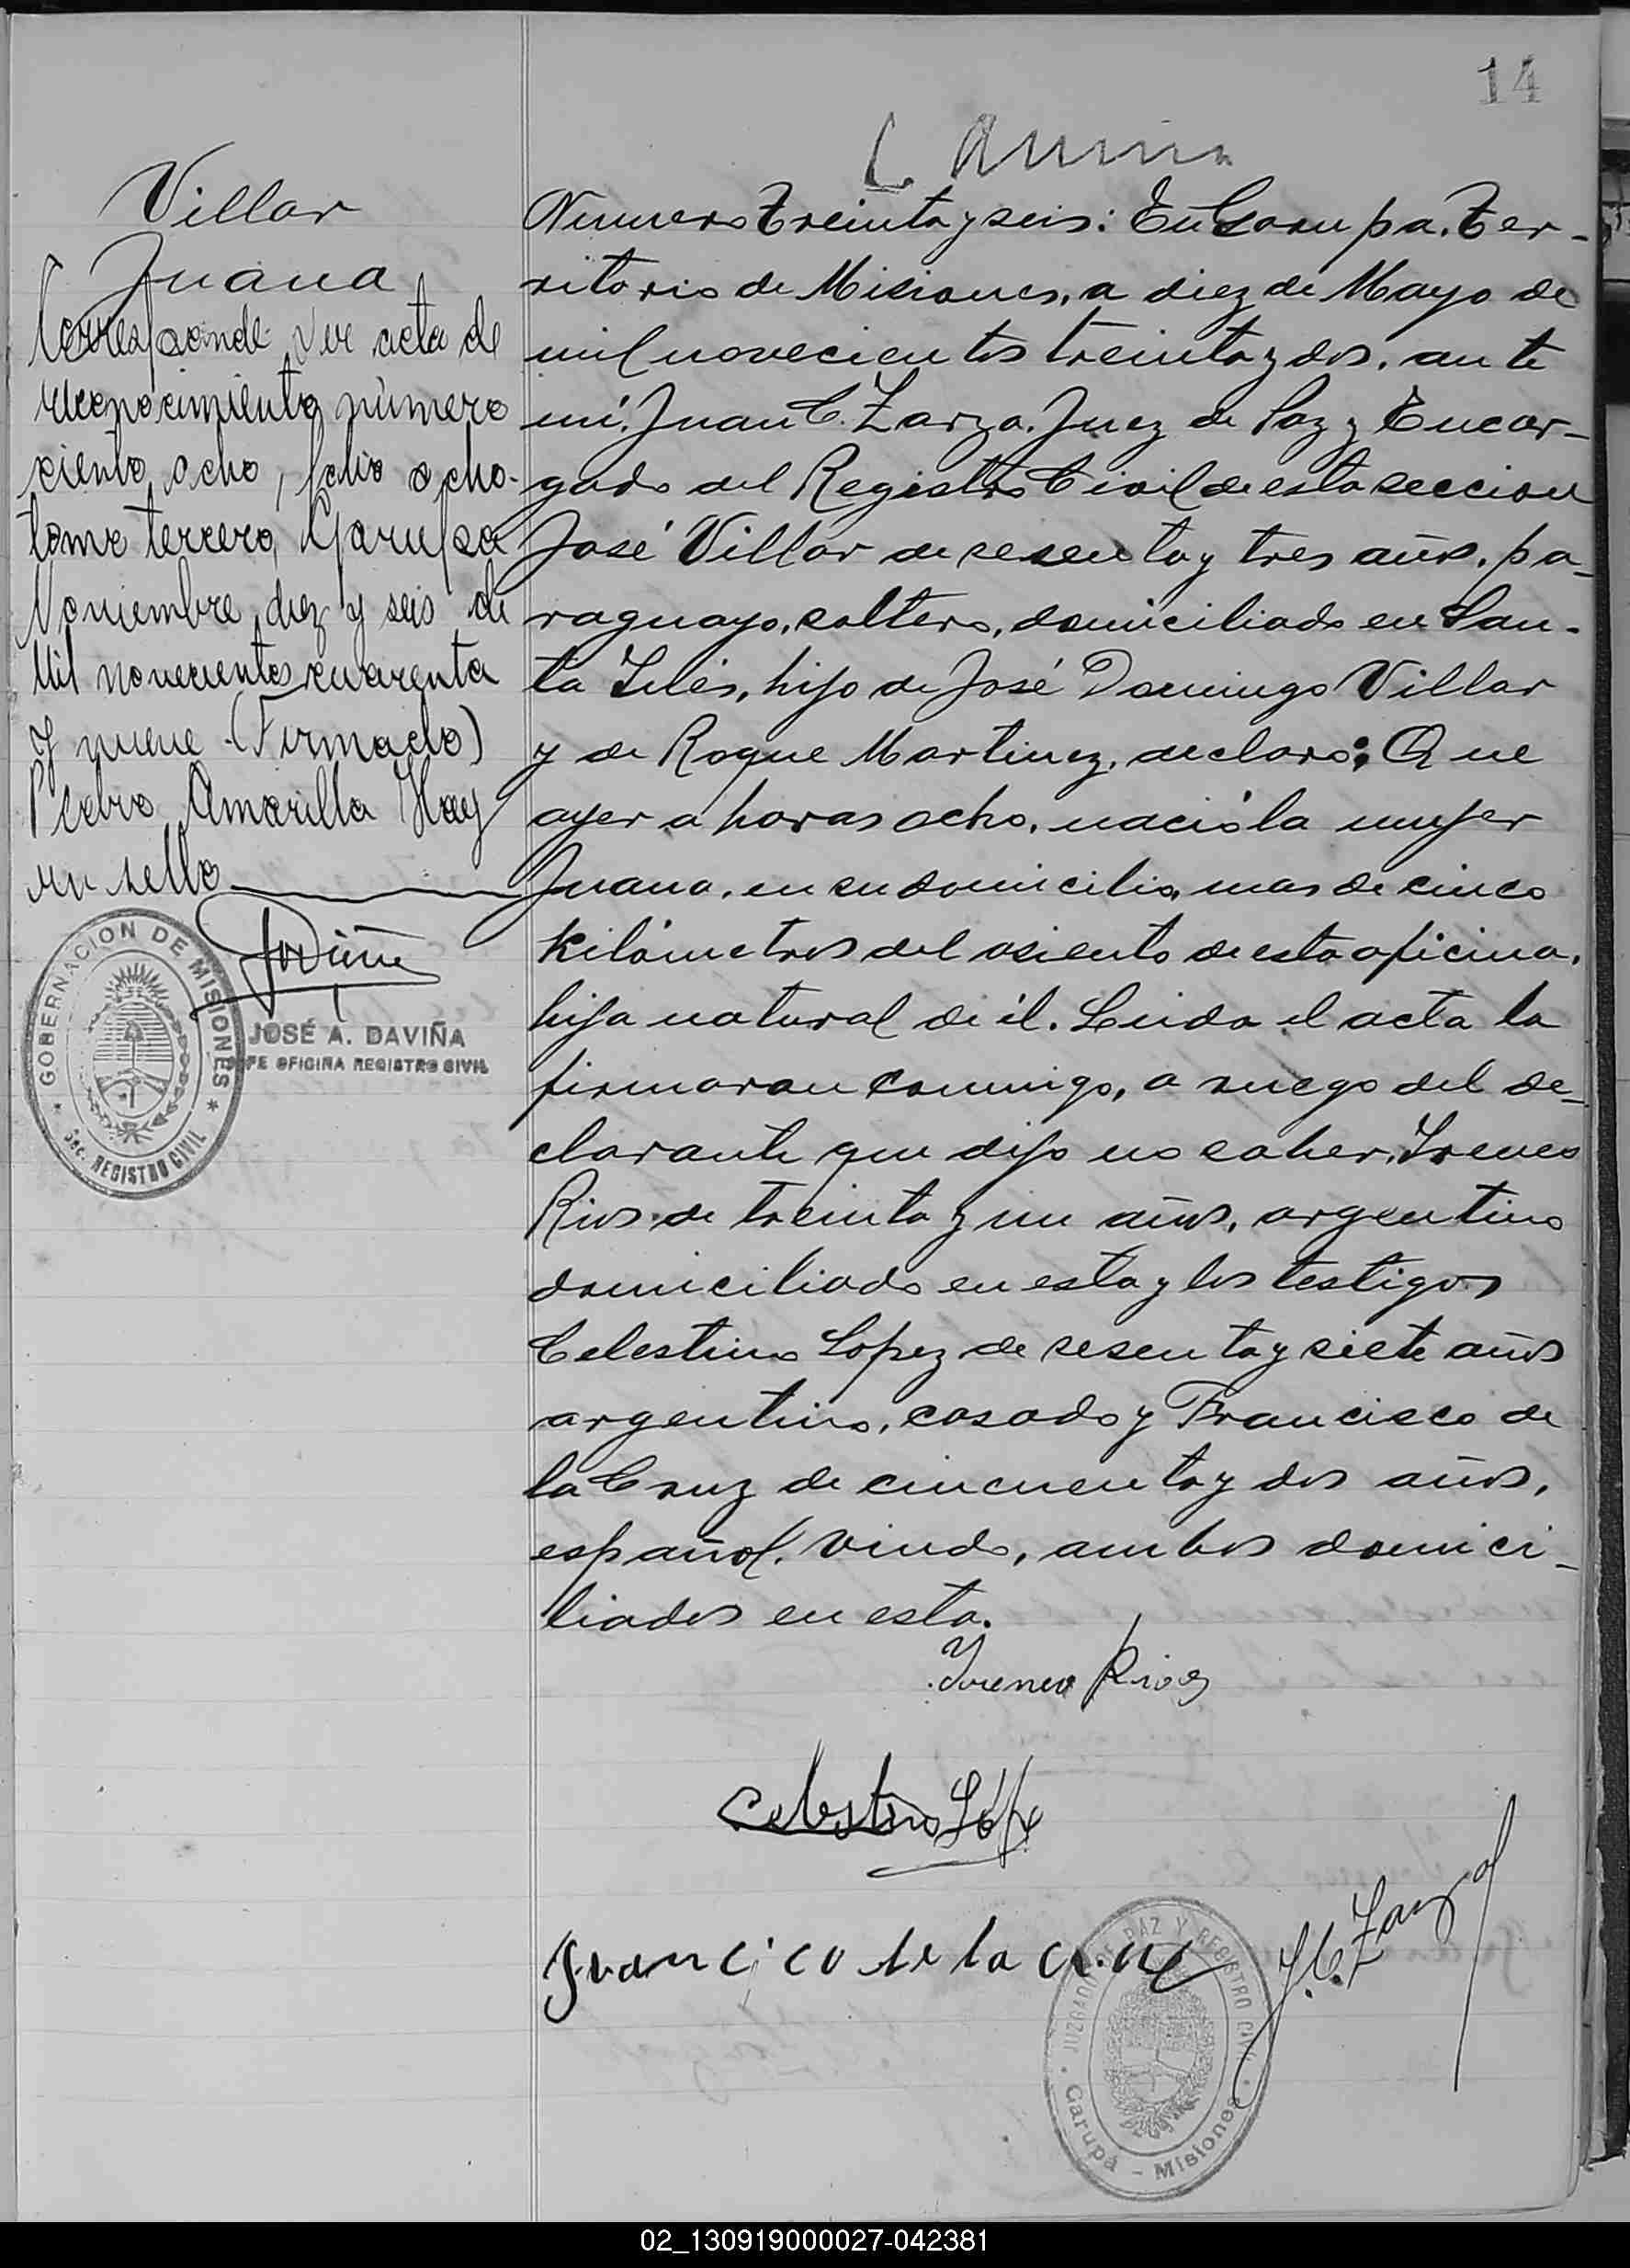 14
Villar
Juana
Corresponde ver acta de
reconocimiento número
ciento ocho, folio ocho.
tomo tercero, Garupa
Noviembre diez y seis de
Mil novecientos cuarenta
y nueve (Firmado)
Pedro Amarilla Hay
un sello
GOBERNACION DE MISIONES
Sec. REGISTRO CIVIL
JOSÉ A. DAVIÑA
JEFE OFICINA REGISTRO CIVIL
Numero Treinta y seis: En Garupa. Ter-
ritorio de Misiones, a diez de Mayo de
mil novecientos treinta y dos. ante
mi. Juan C. Zarza. Juez de Paz y Encar-
gado del Registro Civil de esta seccion
José Villar de sesenta y tres años. pa-
raguayo, soltero, domiciliado en San-
ta Inés, hijo de José Domingo Villar
y de Roque Martinez, declaro: Que
ayer a horas ocho. nació la mujer
Juana. en su domicilio, mas de cinco
kilómetros del asiento de esta oficina.
hija natural de él. Leida el acta la
firmaron conmigo, a ruego del de-
clarante que dijo no saber, Ireneo
Rios de treinta y un años, argentino
domiciliado en esta y los testigos
Celestino Lopez de sesenta y siete años
argentino, casado y Francisco de
la Cruz de cincuenta y dos años,
español. viudo, ambos domici-
liados en esta.
Ireneo Rios
Celestino López
Francico de la Cruz
J.C. Zarza
JUZGADO DE PAZ Y REGISTRO CIVIL
Garupá - Misiones
02_130919000027-042381